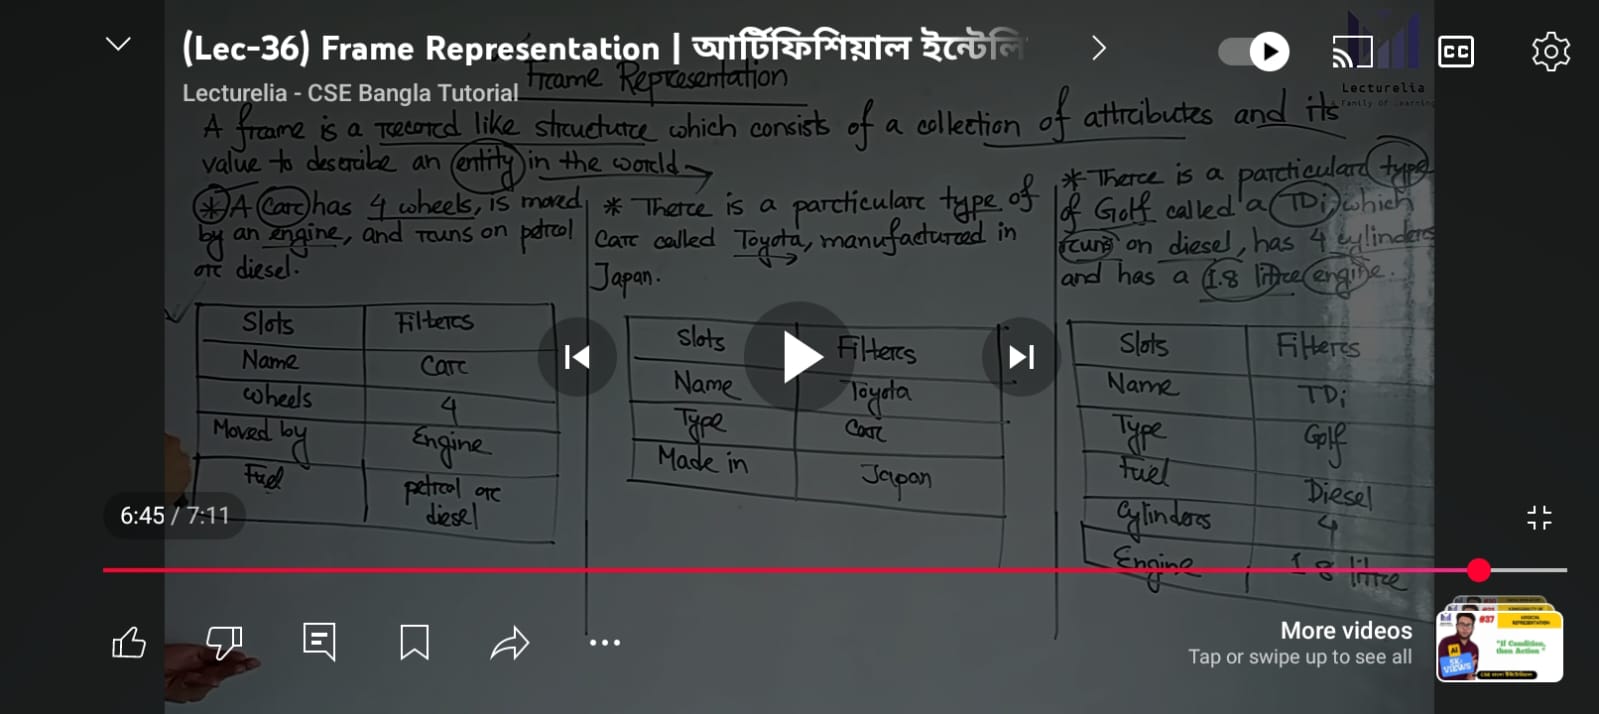 (Lec-36) Frame Representation | আর্টিফিশিয়াল ইন্টেলি
Lecturelia - CSE Bangla Tutorial
CC
Lecturelia
Family Of Learning
Frame Representation
A frame is a record like structure which consists of a collection of attributes and its
value to describe an entity in the world
* A Car has 4 wheels, is moved
by an engine, and runs on petrol
or diesel.
Slots Filters
Name Car
Wheels 4
Moved by Engine
Fuel petrol or diesel
* There is a particular type of
Car called Toyota, manufactured in
Japan.
Slots Filters
Name Toyota
Type Car
Made in Japan
* There is a particular type
of Golf called a TDi, which
runs on diesel, has 4 cylinders
and has a 1.8 litre engine.
Slots Filters
Name TDi
Type Golf
Fuel Diesel
Cylinders 4
Engine 1.8 litre
6:45 / 7:11
More videos
Tap or swipe up to see all
#37
"If Condition,
then Action"
AI
5K+
VIEWS